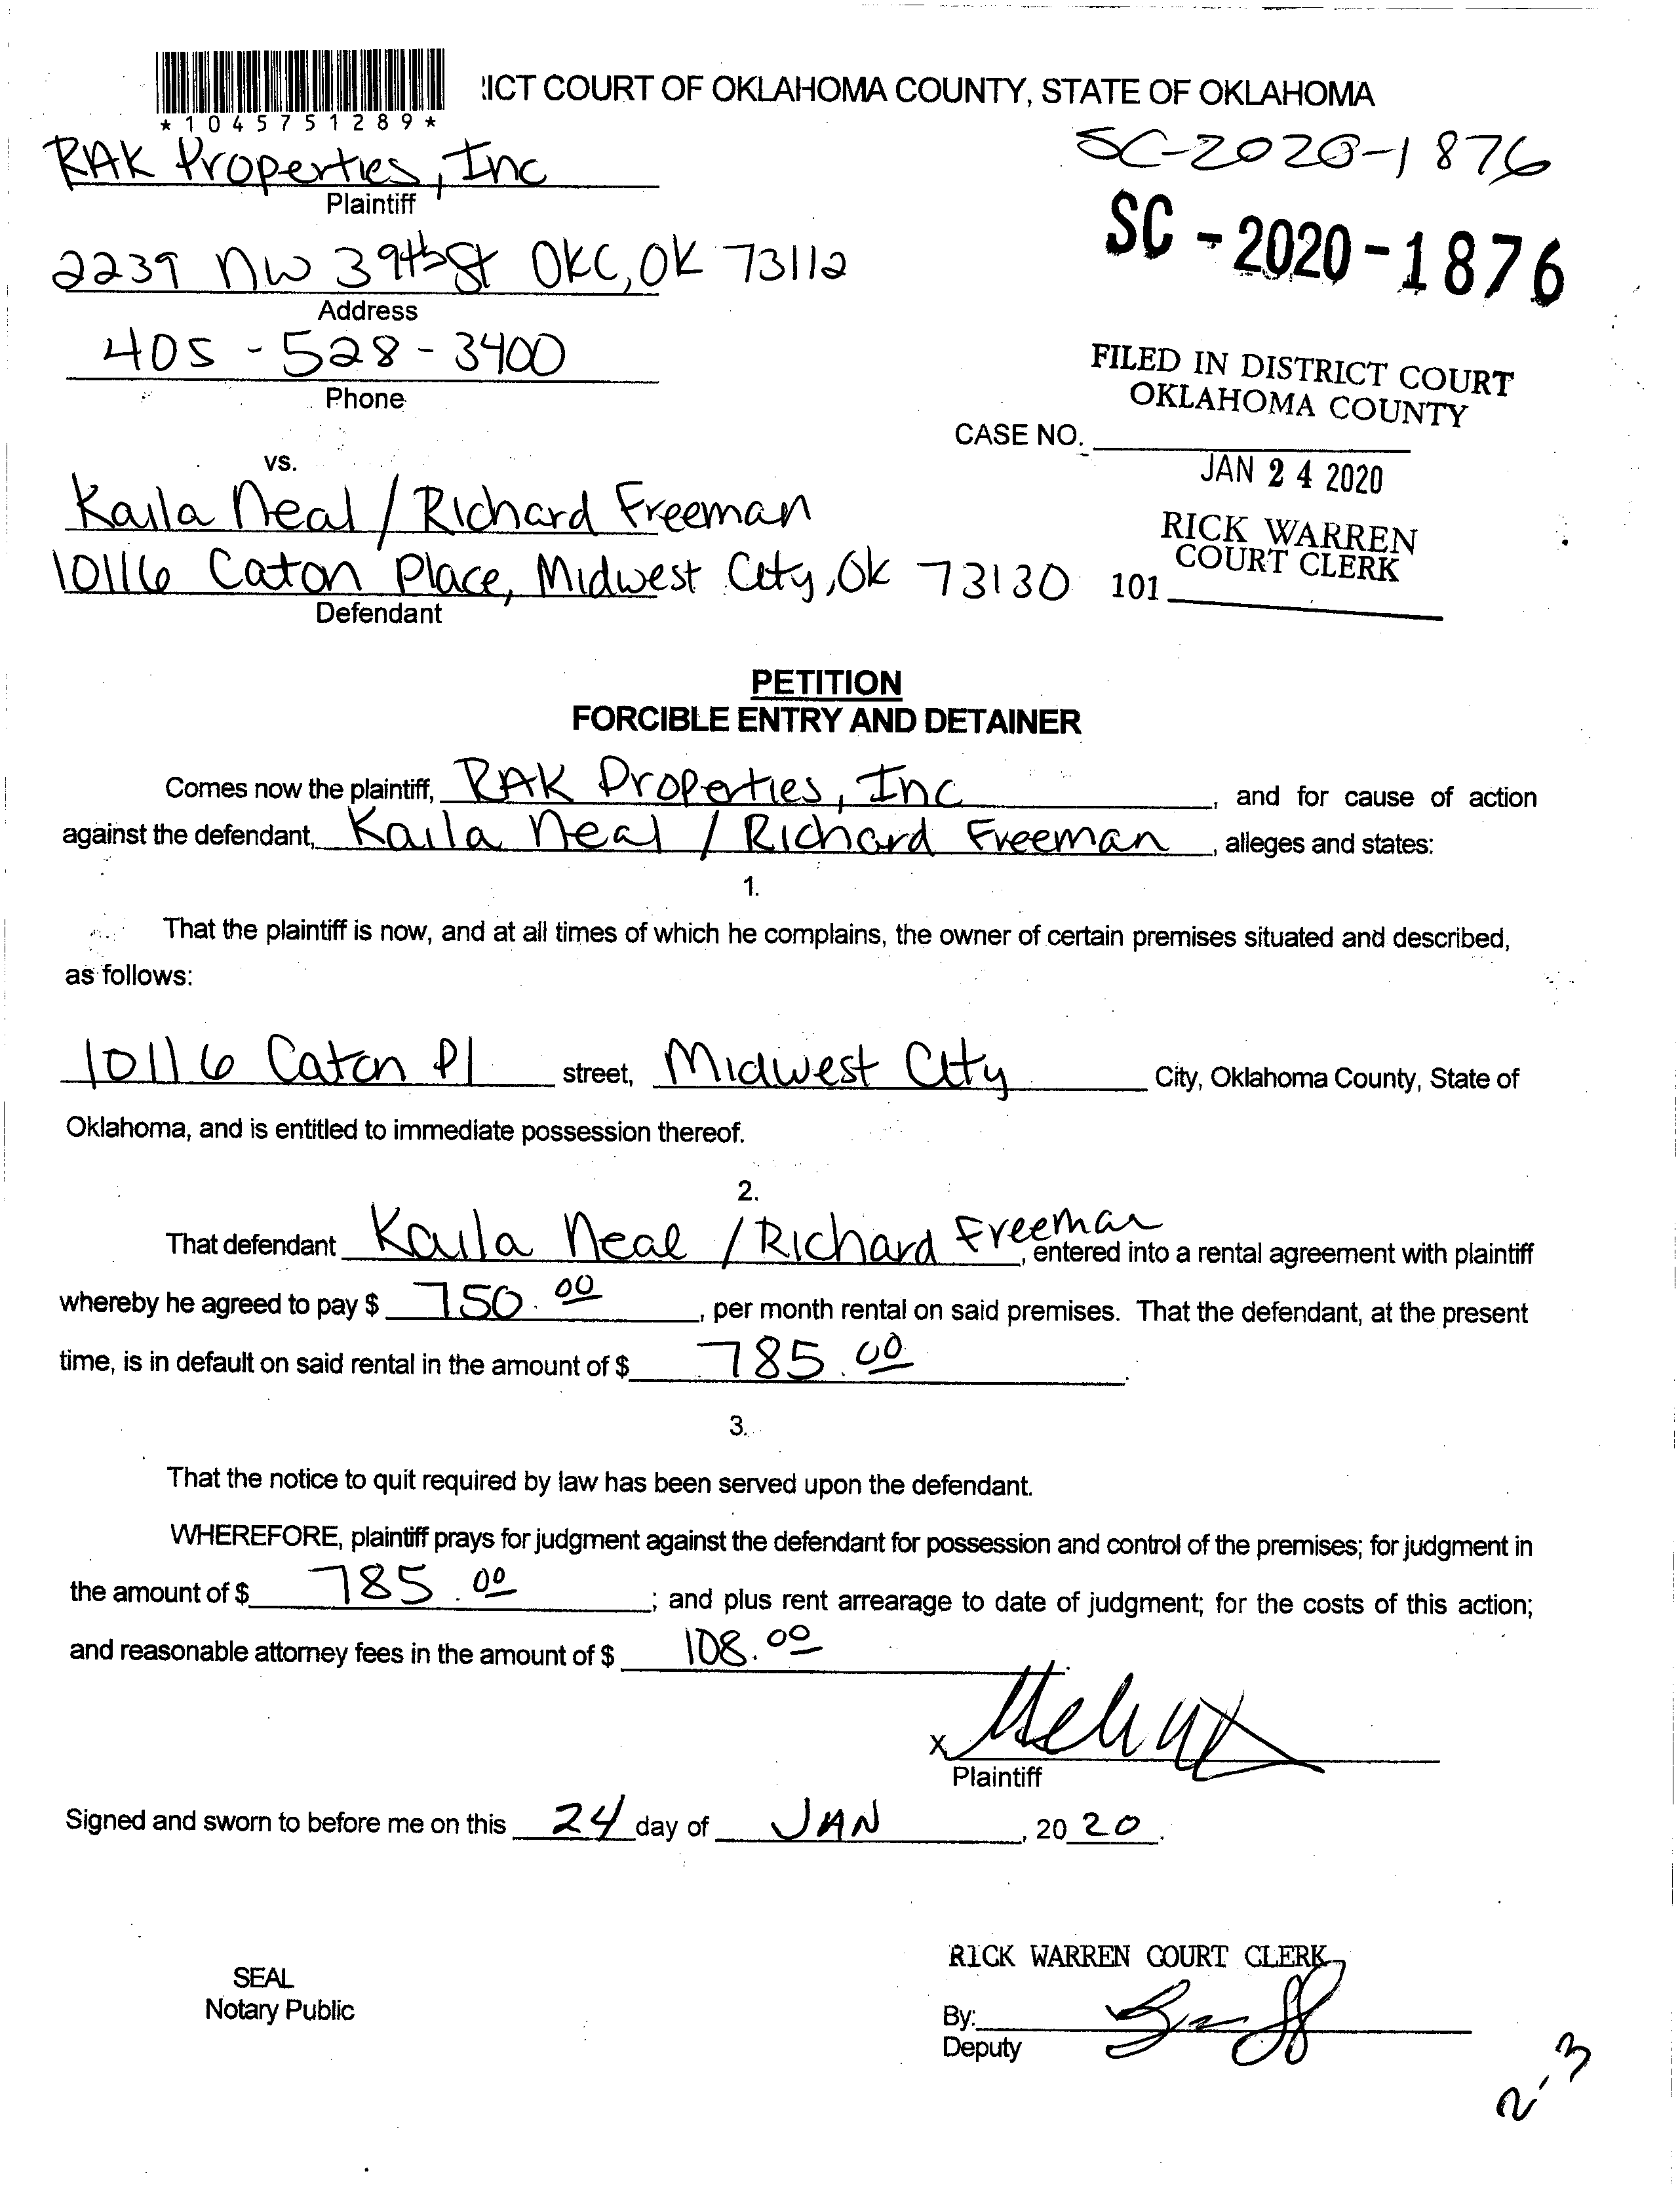 ICT COURT OF OKLAHOMA COUNTY, STATE OF OKLAHOMA
*1045751289*
RAK Properties, Inc
SC-2020-1876
Plaintiff
SC-2020-1876
2239 NW 39th St OKC, OK 73112
Address
405-528-3400
FILED IN DISTRICT COURT
OKLAHOMA COUNTY
Phone
CASE NO.
vs.
JAN 24 2020
Kaila Neal / Richard Freeman
RICK WARREN
COURT CLERK
10116 Caton Place, Midwest City, Ok 73130
101
Defendant
PETITION
FORCIBLE ENTRY AND DETAINER
Comes now the plaintiff, RAK Properties, Inc, and for cause of action
against the defendant, Kaila Neal / Richard Freeman, alleges and states:
1.
That the plaintiff is now, and at all times of which he complains, the owner of certain premises situated and described,
as follows:
10116 Caton Pl street, Midwest City City, Oklahoma County, State of
Oklahoma, and is entitled to immediate possession thereof.
2.
That defendant Kaila Neal / Richard Freeman, entered into a rental agreement with plaintiff
whereby he agreed to pay $ 750.00, per month rental on said premises. That the defendant, at the present
time, is in default on said rental in the amount of $ 785.00.
3.
That the notice to quit required by law has been served upon the defendant.
WHEREFORE, plaintiff prays for judgment against the defendant for possession and control of the premises; for judgment in
the amount of $ 785.00; and plus rent arrearage to date of judgment; for the costs of this action;
and reasonable attorney fees in the amount of $ 108.00.
X
Plaintiff
Signed and sworn to before me on this 24 day of JAN, 2020.
RICK WARREN COURT CLERK
SEAL
Notary Public
By:
Deputy
2-3